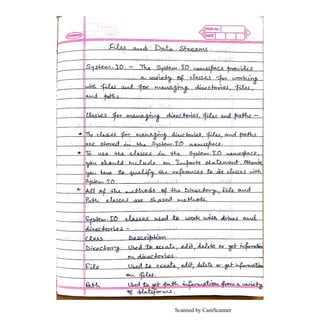 PAGE No.
DATE
Files and Data Streams
System.IO - The System.IO namespace provides
a variety of classes for working
with files and for managing directories, files,
and paths.
Classes for managing directories, files and paths -
* The classes for managing directories, files, and paths
are stored in the System.IO namespace.
* To use the classes in the System.IO namespace,
you should include an Imports statement. Otherwise,
you have to qualify the references to its classes with
System.IO.
* All of the methods of the Directory, File and
Path classes are shared methods.
System.IO classes used to work with drives and
directories -
Class Description
Directory Used to create, edit, delete or get information
on directories.
File Used to create, edit, delete or get information
on files.
Path Used to get path information from a variety
of platforms.
Scanned by CamScanner